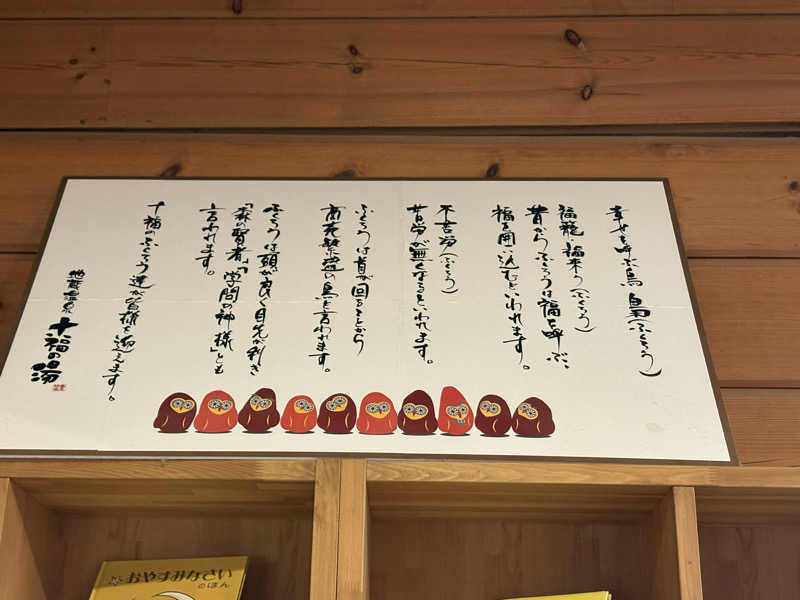 幸せを呼ぶ鳥 梟(ふくろう)
福籠 福来う(ふくろう)
昔からふくろうは福を呼ぶ、
福を囲い込むといわれます。
不苦労(ふくろう)
苦労が無くなるといわれます。
ふくろうは首が回ることから
商売繁盛の鳥と言われます。
ふくろうは頭が良く目先が利き
「森の賢者」「学問の神様」とも
言われます。
十福のふくろう達が皆様を迎えます。
地蔵温泉
十福の湯
おやすみなさい
のほん